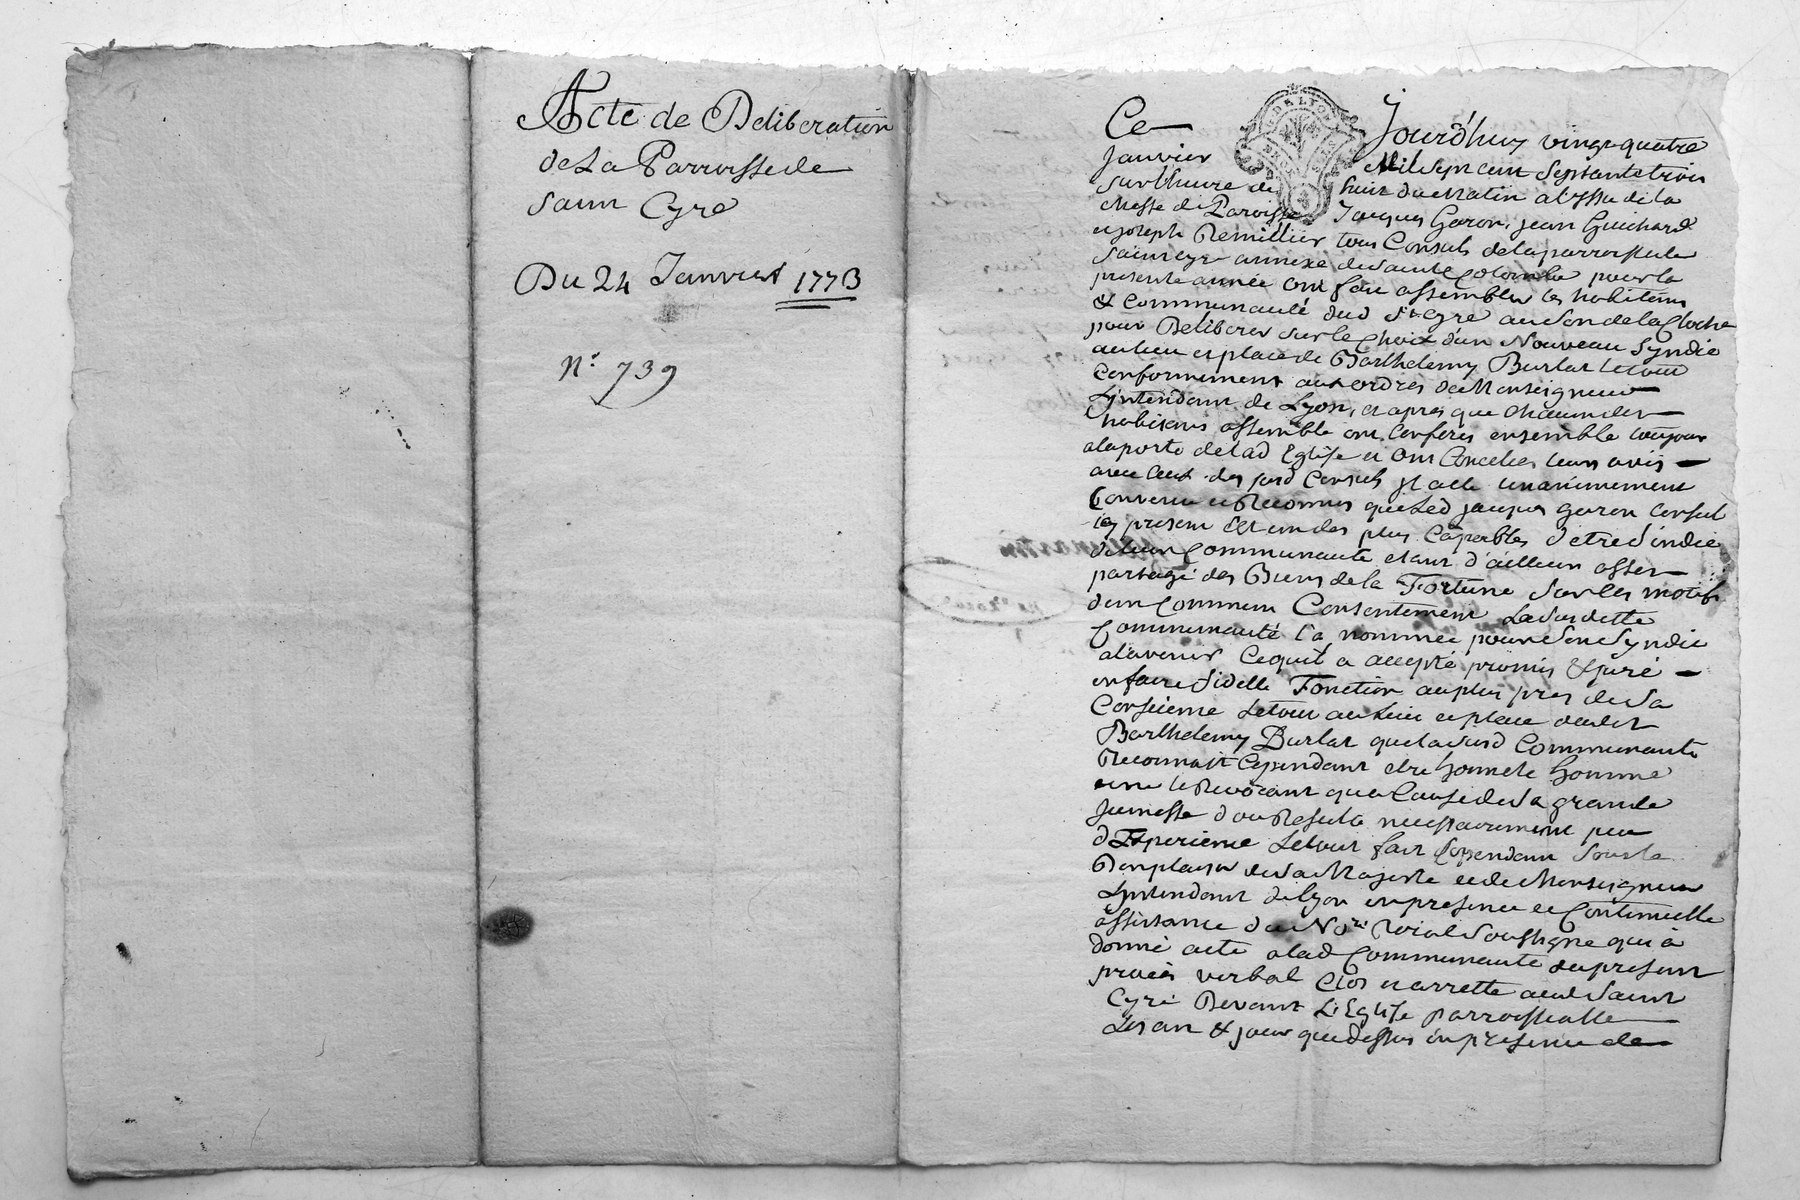 Acte de Deliberation
de La Parroisse de
Saint Cyre
Du 24 Janvier 1773
N.º 739
Ce Jourd'huy vingt quatre
Janvier Mil Sept cent Septante trois
sur l'heure de huit du Matin a l'issu de la
Messe de Paroisse Jacques Garon, jean Guichard
et joseph Remillier tous Consuls de la parroisse de
Saint cyre annexe de Sainte Colombe pour la
presente année ont fait assembler les habitans
& Communauté dud St. Cyre au Son de la Cloche
pour Deliberer sur le Choix d'un Nouveau Syndic
au lieu et place de Barthelemy Burlat le tout
Conformement aux ordres de Monseigneur
L'intendant de Lyon, et apres que chacun des
habitans assemblé ont Conferes ensemble toujours
a la porte de lad Eglise et ont leurs avis
avec ceux des susd Consuls il a été unanimement
Convenu et Reconnus que Led jacques garon Consul
icy present Est un des plus Capables d'etre Sindic
de leur Communauté etant d'ailleurs asses
partagé des Biens de la Fortune Sur les motifs
d'un Commun Consentement La Susdette
Communauté l'a nommée pour Son Syndic
a l'avenir Ce qu'il a accepté promis & juré
en faire fidelle Fonction au plus pres de Sa
Consience Le tout au Lieu et place dudit
Barthelemy Burlat que la susd Communauté
Reconnait Cependant etre honnete homme
ne le Revocant qu'a Cause de Sa grande
Jeunesse d'ou Resulte necessairement peu
d'Experience Le tout fait Cependant Sous le
Bon plaisir de Sa Majesté et de Monseigneur
L'intendant de lyon en presence et Continuelle
assistance du Nore. Roial Soussigne qui a
donné acte a lad Communaute du present
procès verbal Clos et arretté aud Saint
Cyre Devant L'Eglise parroissialle
Les an & jour que dessus en presence de